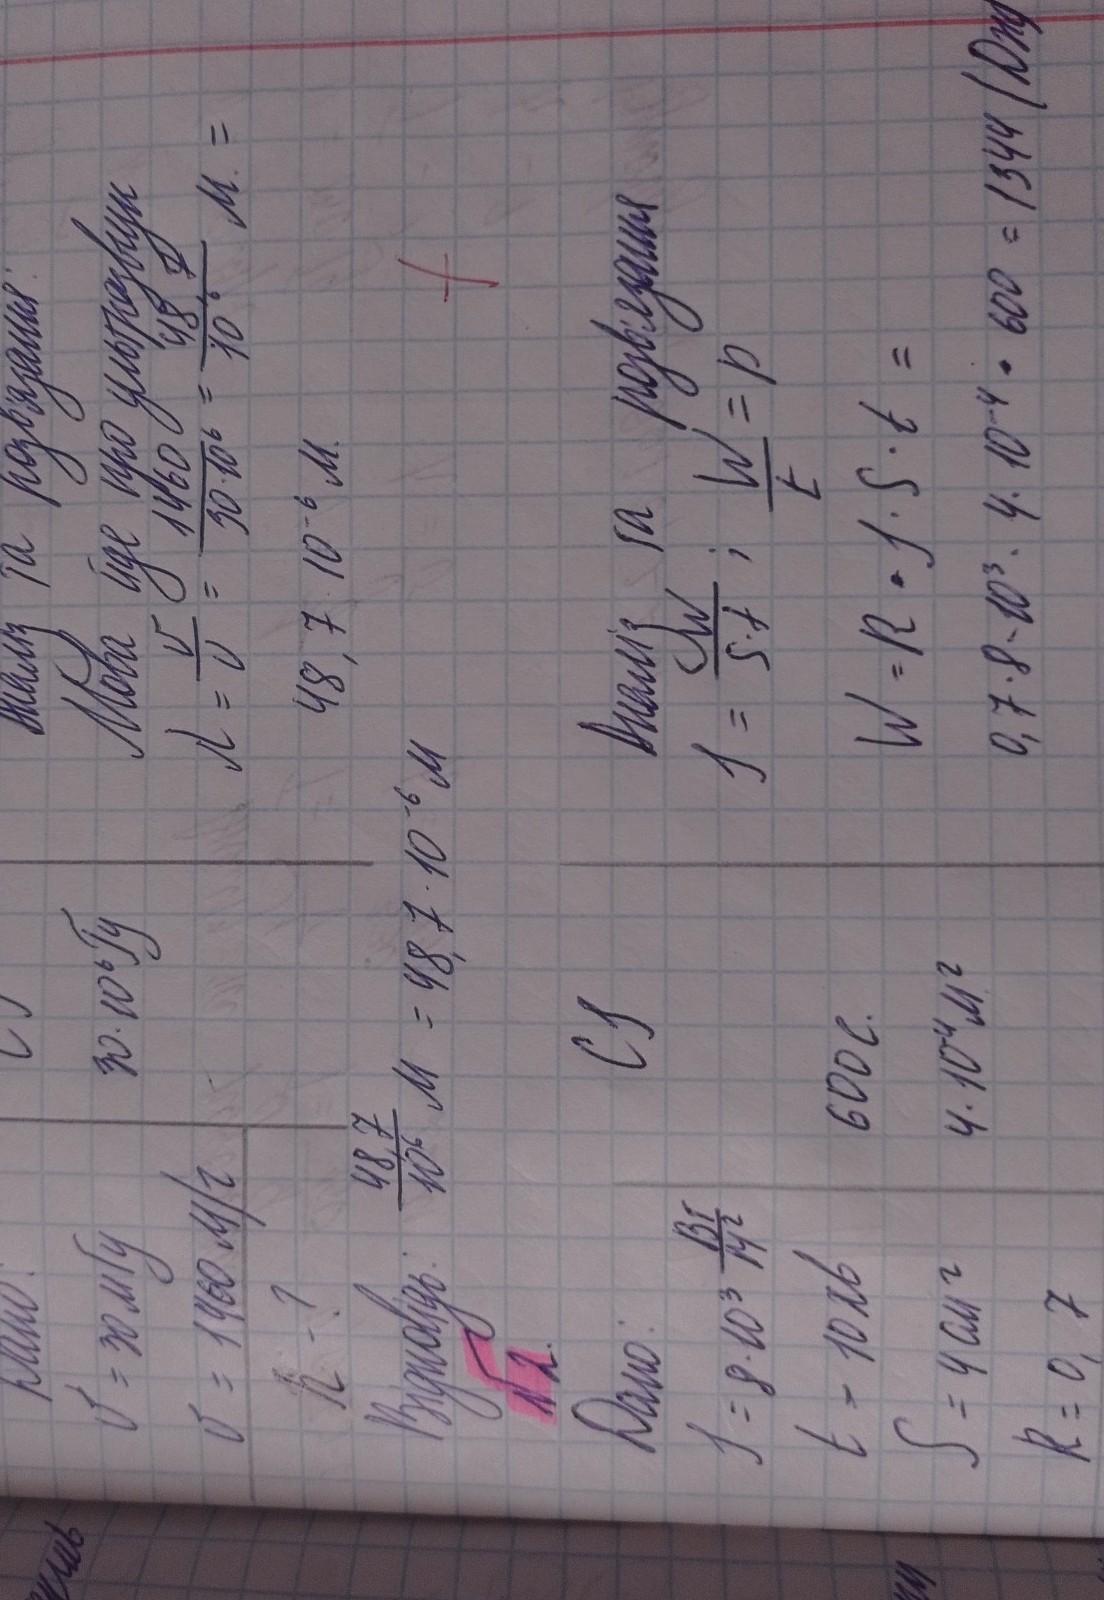 Дано:
ν = 30 мГц
30·10⁶ Гц
υ = 1460 м/с
λ - ?
Аналіз та розв'язання:
Мова йде про ультразвук
λ = υ/ν = 1460/30·10⁶ = 48,7/10⁶ м. =
48,7 · 10⁻⁶ м.
Відповідь: 48,7/10⁶ м = 48,7 · 10⁻⁶ м
№2.
Дано:
СІ
I = 8·10³ Вт/м²
t - 10 хв
600 с.
S = 4 см²
4·10⁻⁴ м²
k = 0,7
Аналіз та розв'язання
I = W/S·t ; W/t = p
W = k · I · S · t =
0,7·8·10³·4·10⁻⁴·600 = 1344 (Дж)